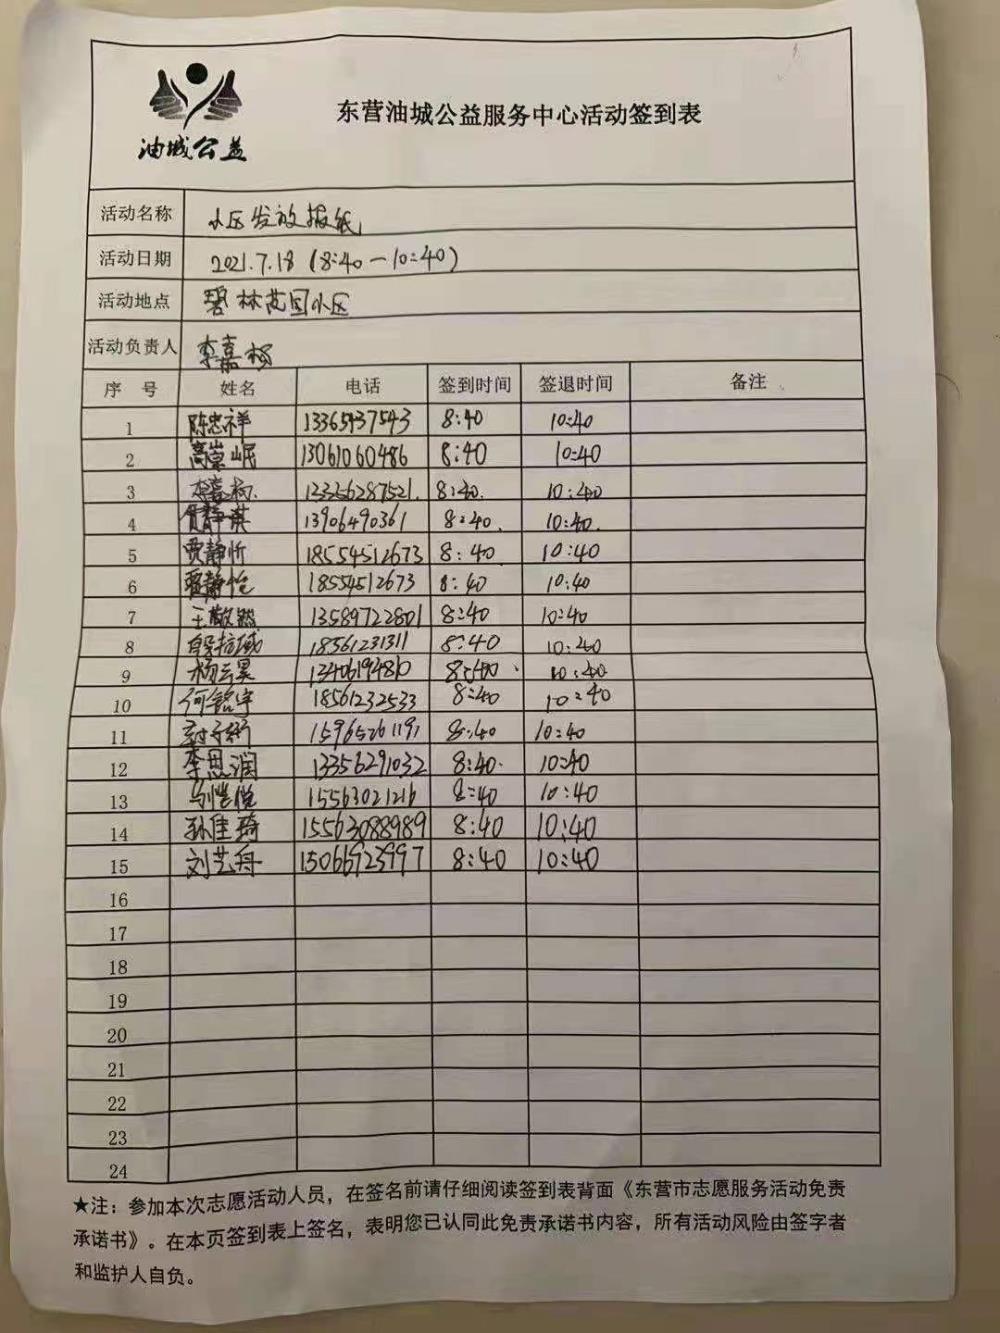 油城公益
东营油城公益服务中心活动签到表
活动名称 小区发放报纸
活动日期 2021.7.18 (8:40-10:40)
活动地点 碧林花园小区
活动负责人 李嘉杨
序 号 姓名 电话 签到时间 签退时间 备注
1 陈忠祥 8:40 10:40
2 高崇岷 13061060486 8:40 10:40
3 13356287521. 8:40. 10:40
4 贾静淇 13906490361 8:40. 10:40.
5 贾静忻 18554512673 8:40 10:40
6 贾静怡 18554512673 8:40 10:40
7 王敬懿 13589722801 8:40 10:40
8 18561231311 8:40 10:40
9 杨云昊 10:40
10 何铭宇 18561232533 8:40 10:40
11 8:40 10:40
12 李思润 13356291032 8:40. 10:40
13 马恺悦 15563021216 8:40 10:40
14 孙佳琦 15563088989 8:40 10:40
15 刘艺舟 15066923997 8:40 10:40
16
17
18
19
20
21
22
23
24
★注：参加本次志愿活动人员，在签名前请仔细阅读签到表背面《东营市志愿服务活动免责
承诺书》。在本页签到表上签名，表明您已认同此免责承诺书内容，所有活动风险由签字者
和监护人自负。